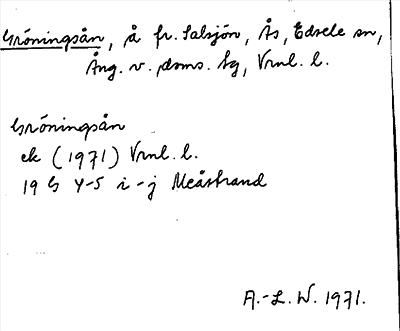 Gröningsån, å fr. Salsjön, Ås, Edsele sn,
Ång. v. doms. sg, Vrnl. l.
Gröningsån
ek (1971) Vrnl. l.
19 G 4-5 i-j Meåstrand
A.-L. W. 1971.